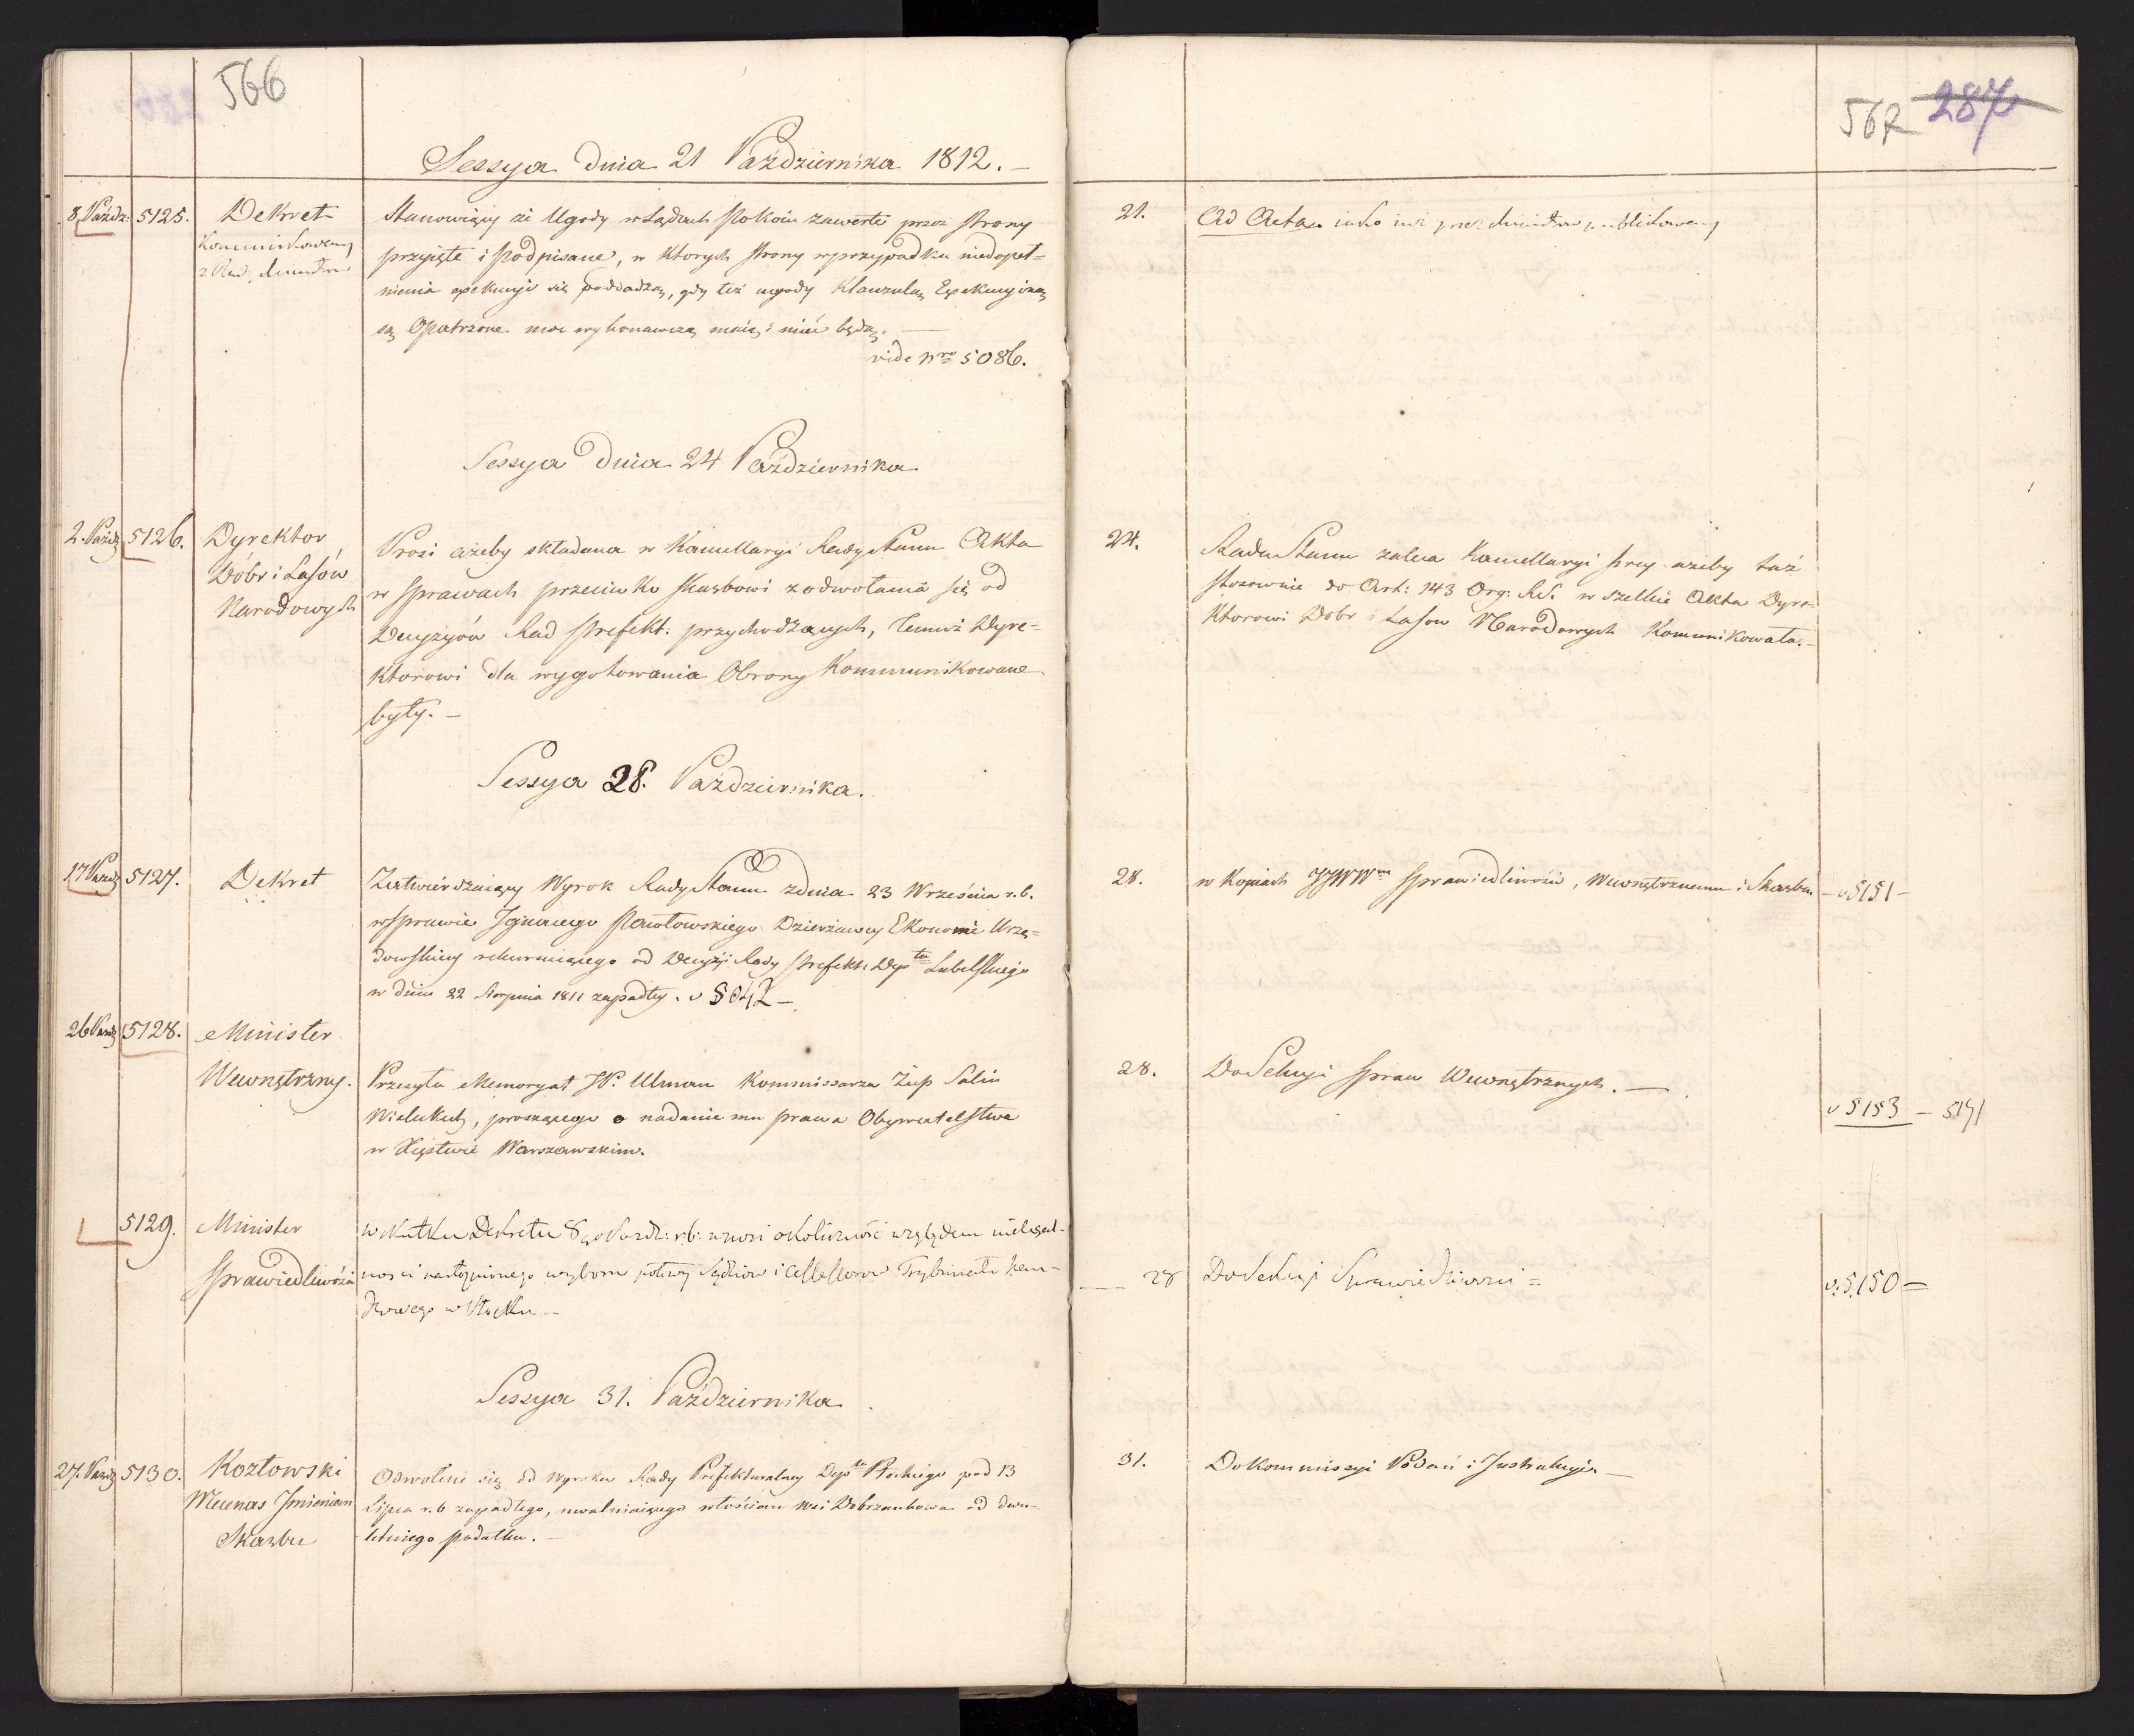 566
Sessya dnia 21 Października 1812. –
8. Paźdz: 5125. Dekret
Kommunikowany
z Rad: Ministrów
Stanowiący że Ugody w Sądach Pokoiu zawarte przez strony
przyięte i podpisane, w których strony w przypadku niedopeł=
nienia exekucyi się poddadzą, gdy też ugody Klauzulą Exekucyiną
są Opatrzone moc wykonawczą maią i mieć będą. –
vide Nro 5086.
Sessya dnia 24 Października
2. Paźdz 5126. Dyrektor
Dóbr i Lasów
Narodowych
Prosi ażeby składane w Kancellaryi Rady Stanu Akta
w sprawach przeciwko Skarbowi z odwołania się od
Decyzyów Rad Prefekt: przychodzących, Temuż Dyre=
ktorowi dla wygotowania Obrony Kommunikowane
były. –
Sessya 28. Października.
17 Paźdz 5127. Dekret
Zatwierdzaiący Wyrok Rady Stanu z dnia 23 Września r. b.
w Sprawie Ignacego Pawłowskiego Dzierżawcy Ekonomi Urzę=
dowskiey rekursuiącego od Decyzyi Rady Prefekt: Depta Lubelskiego
w dniu 22 Sierpnia 1811 zapadłey. v 5042 –
26 Paźdz 5128. Minister
Wewnętrzny.
Przesyła Memoryał JP. Ulman Kommissarza Żup Salin
Wielickich, proszącego o nadanie mu prawa Obywatelstwa
w Xięstwie Warszawskim.
5129. Minister
Sprawiedliwości
w skutku Dekretu 8go Paźdz: r. b: wnosi okoliczność względem nielegal-
ności nastąpionego wyboru połowy Sędziów i Assessorów Trybunału han-
dlowego w Płocku –
Sessya 31. Października
27. Paźdz 5130. Kozłowski
Mecenas Jmieniem
Skarbu
Odwołuie się od Wyroku Rady Prefekturalney Depta Płockiego pod 13
Lipca r. b zapadłego, uwalniaiącego włościan wsi Dobrzankowa od dwu-
letniego podatku. –
567 287
21. Ad Acta iako iuż przez Ministra publikowany
24. Rada Stanu zaleca Kancellaryi swey ażeby taż
stosownie do Art: 143 Org: R.S. wszelkie Akta Dyre-
ktorowi Dobr i Lasow Narodowych Komunikowała. –
28. w Kopiach JJWWm Sprawiedliwości, Wewnętrznemu i Skarbu – v 5151 –
28. Do Sekcyi Spraw Wewnętrznych. –
v 5153 – 5171
28 Do Sekcyi Sprawiedliwości =
v. 5150 =
31. Do Kommissyi Podań i Instrukcyi –